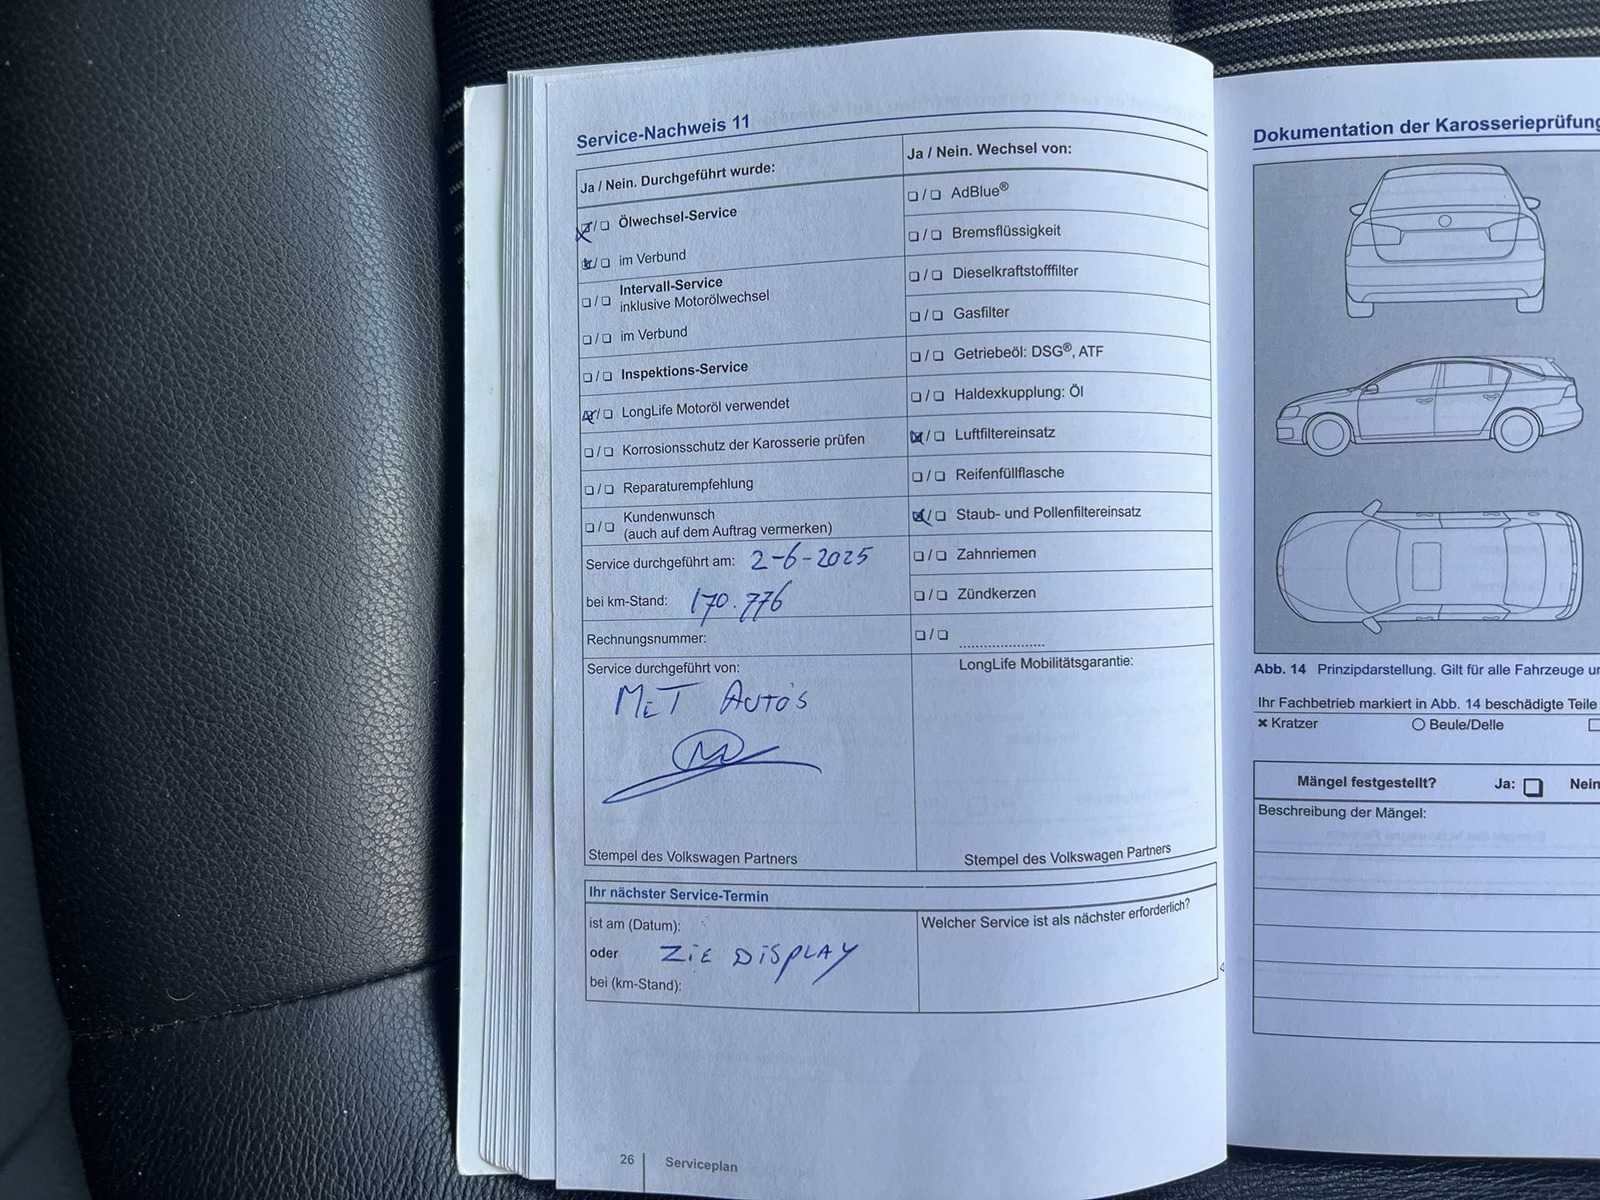 Service-Nachweis 11
Ja / Nein. Durchgeführt wurde:
❏/❏ Ölwechsel-Service
❏/❏ im Verbund
❏/❏ Intervall-Service
inklusive Motorölwechsel
❏/❏ im Verbund
❏/❏ Inspektions-Service
❏/❏ LongLife Motoröl verwendet
❏/❏ Korrosionsschutz der Karosserie prüfen
❏/❏ Reparaturempfehlung
❏/❏ Kundenwunsch
(auch auf dem Auftrag vermerken)
Service durchgeführt am: 2-6-2025
bei km-Stand: 170.776
Rechnungsnummer:
Service durchgeführt von:
MET AUTO'S
Stempel des Volkswagen Partners
Ja / Nein. Wechsel von:
❏/❏ AdBlue®
❏/❏ Bremsflüssigkeit
❏/❏ Dieselkraftstofffilter
❏/❏ Gasfilter
❏/❏ Getriebeöl: DSG®, ATF
❏/❏ Haldexkupplung: Öl
❏/❏ Luftfiltereinsatz
❏/❏ Reifenfüllflasche
❏/❏ Staub- und Pollenfiltereinsatz
❏/❏ Zahnriemen
❏/❏ Zündkerzen
❏/❏ .....................
LongLife Mobilitätsgarantie:
Stempel des Volkswagen Partners
Ihr nächster Service-Termin
ist am (Datum):
oder ZIE DISPLAY
bei (km-Stand):
Welcher Service ist als nächster erforderlich?
26 Serviceplan
Dokumentation der Karosserieprüfung
Abb. 14 Prinzipdarstellung. Gilt für alle Fahrzeuge
Ihr Fachbetrieb markiert in Abb. 14 beschädigte Teile
✖ Kratzer ○ Beule/Delle
Mängel festgestellt? Ja: ❏ Nein
Beschreibung der Mängel: